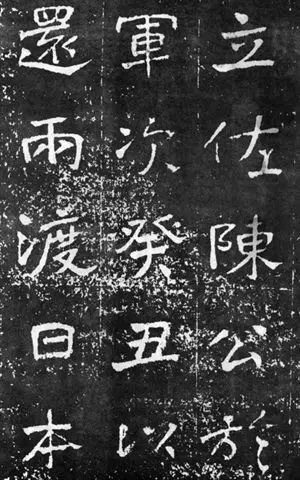 立佐陳公於
軍次癸丑以
還兩渡日本